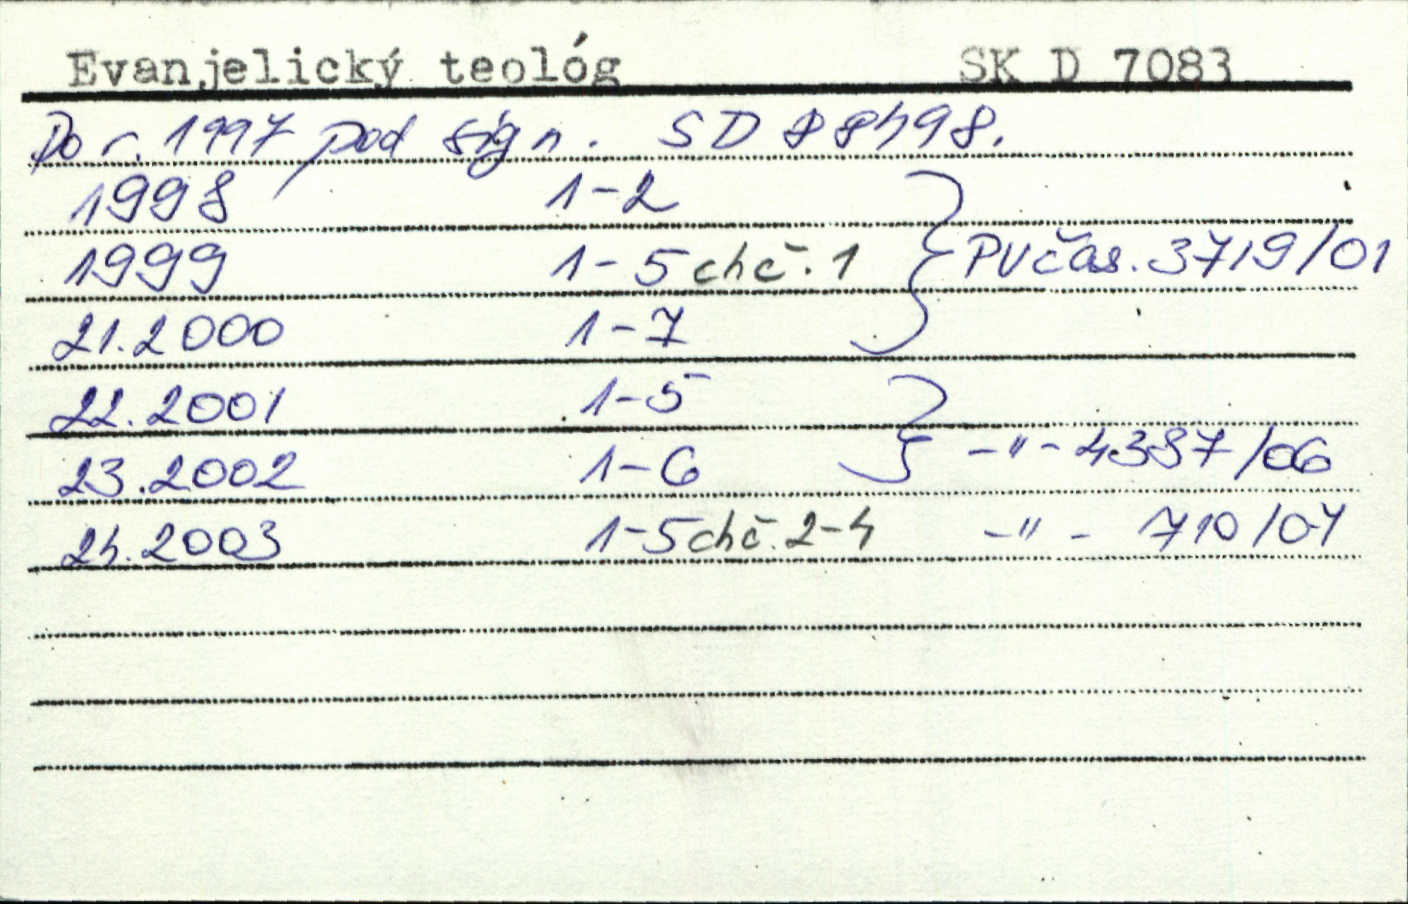 Evanjelický teológ SK D 7083
Do r. 1997 pod sign. SD 88498.
1998 1-2
1999 1-5 chč. 1 PV čas. 3719/01
21.2000 1-7
22.2001 1-5
23.2002 1-6 -"- 4387/06
24.2003 1-5 chč. 2-4 -"- 710/07